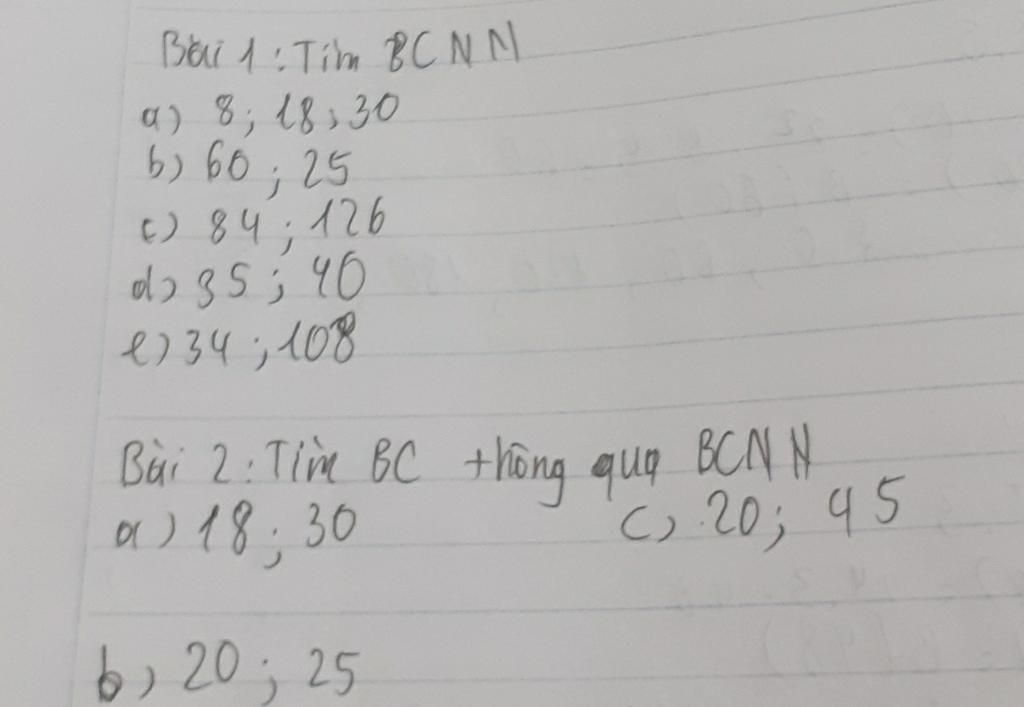 Bài 1: Tìm BCNN
a) 8; 18; 30
b) 60; 25
c) 84; 126
d) 35; 40
e) 34; 108
Bài 2: Tìm BC thông qua BCNN
a) 18; 30 c) 20; 45
b) 20; 25